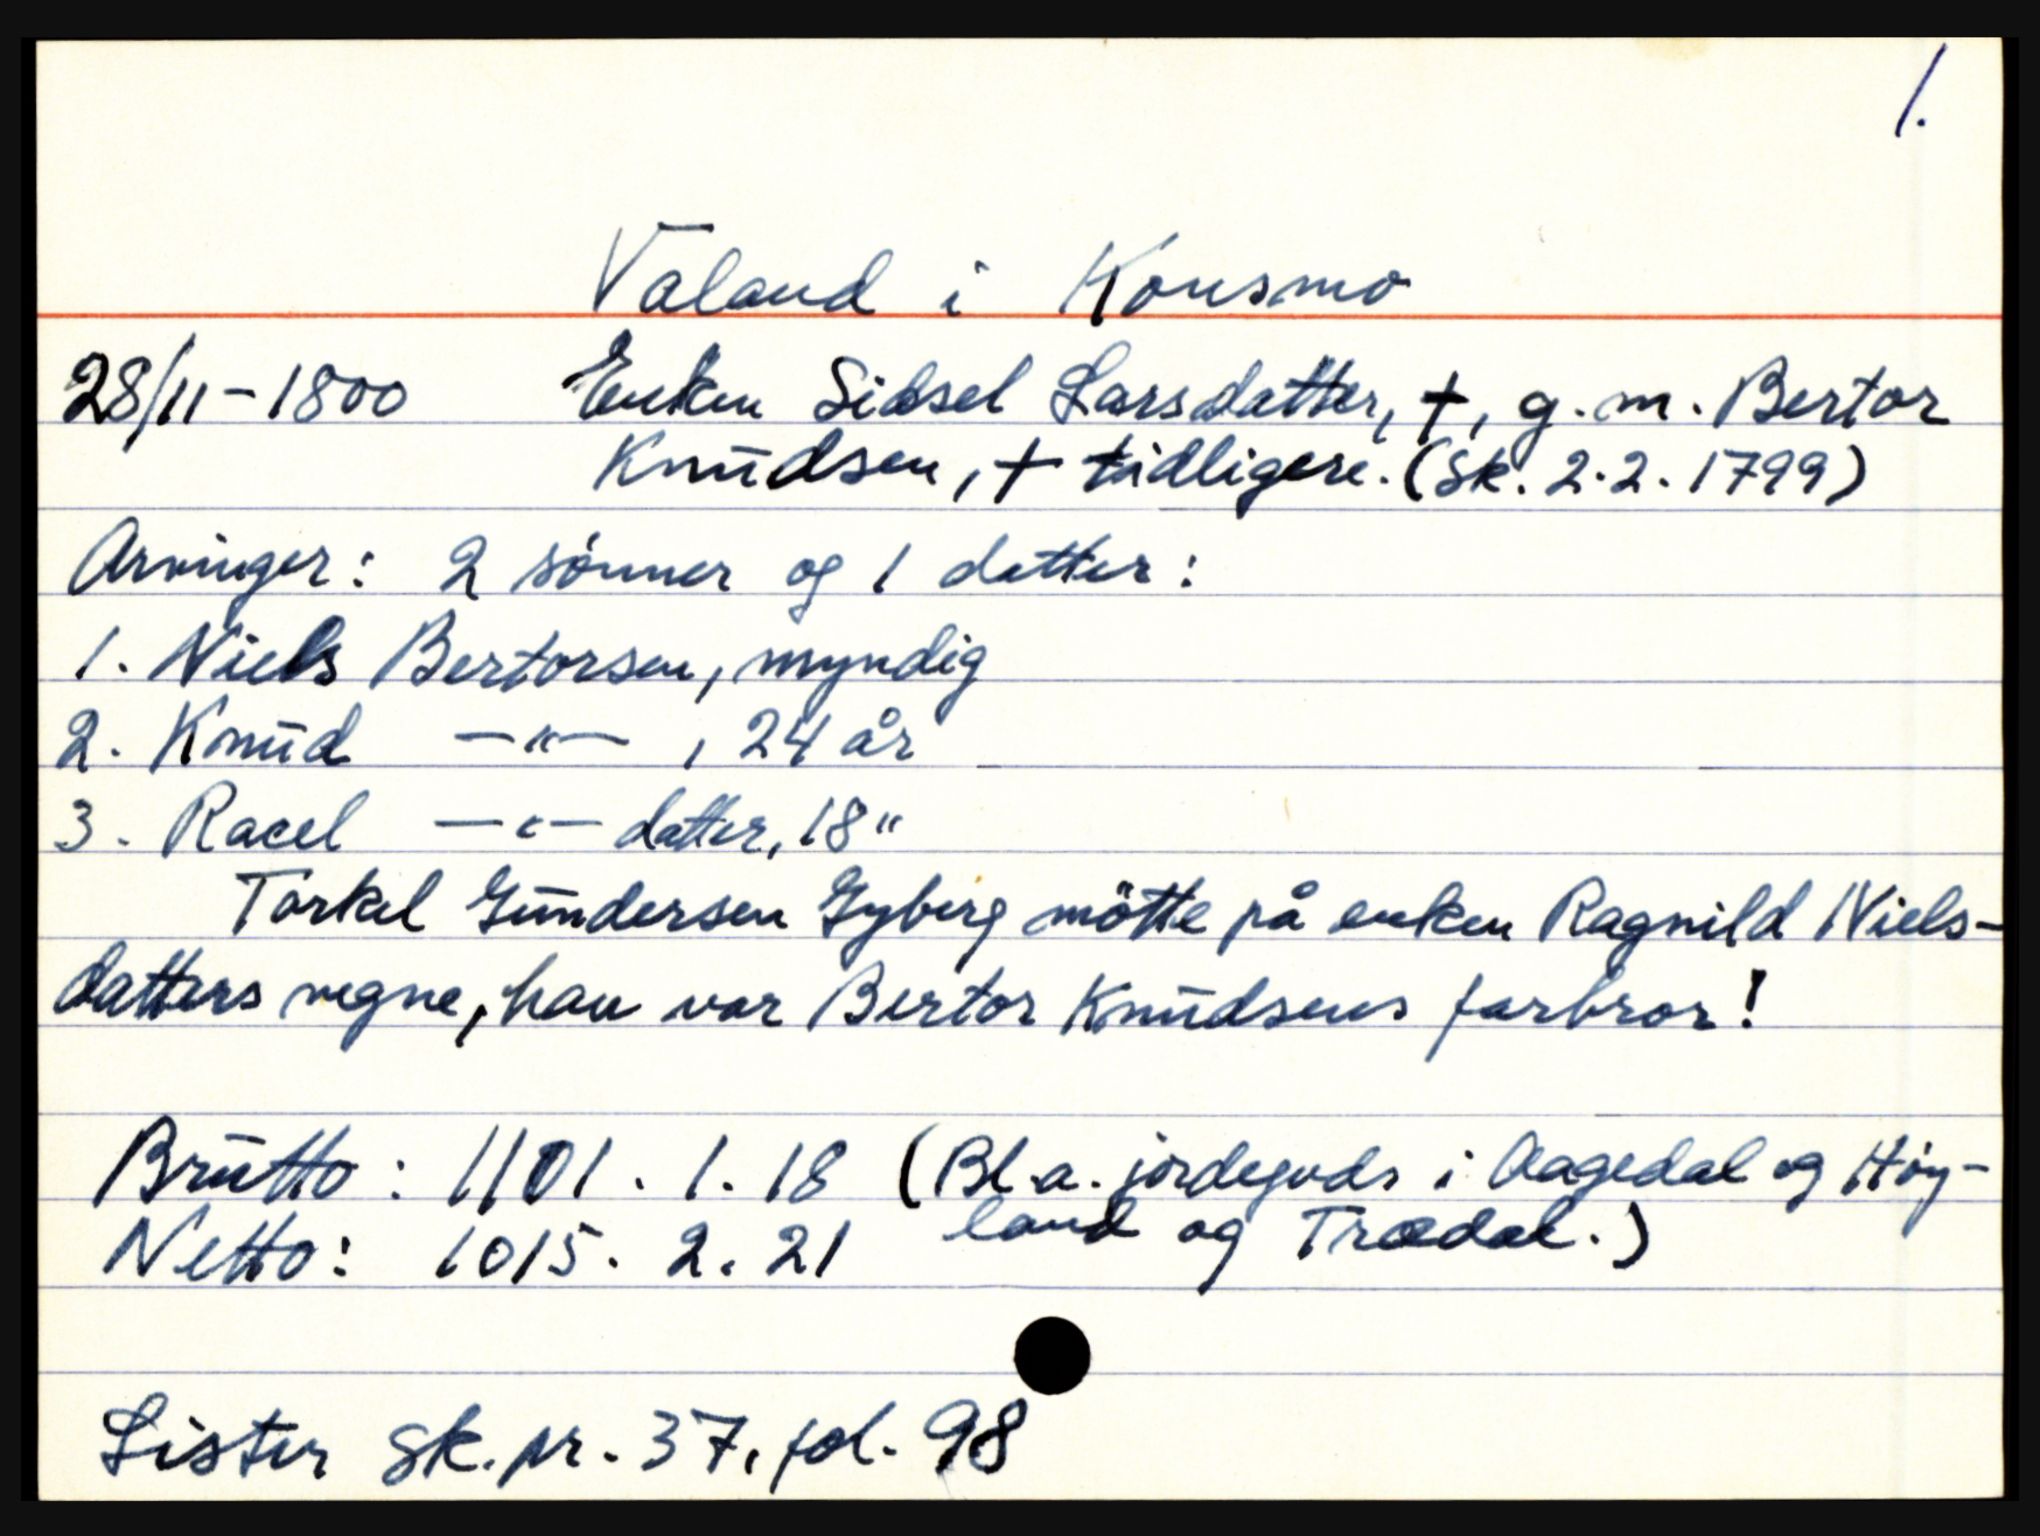 1.
Valand i Konsmo
28/11-1800 Enken Sidsel Larsdatter, †, g.m. Bertor
Knudsen, † tidligere. (Sk. 2.2.1799)
Arvinger: 2 sønner og 1 datter:
1. Niels Bertorsen, myndig
2. Knud —"— , 24 år
3. Racel —"— datter, 18 "
Torkel Gundersen Gyberg mötte på enken Ragnild Niels-
datters vegne, han var Bertor Knudsens farbror!
Brutto: 1101. 1. 18 (Bl.a. jordegods i Aagedal og Høy-
land og Trædal.)
Netto: 1015. 2. 21
Lister sk.pr. 37, fol. 98